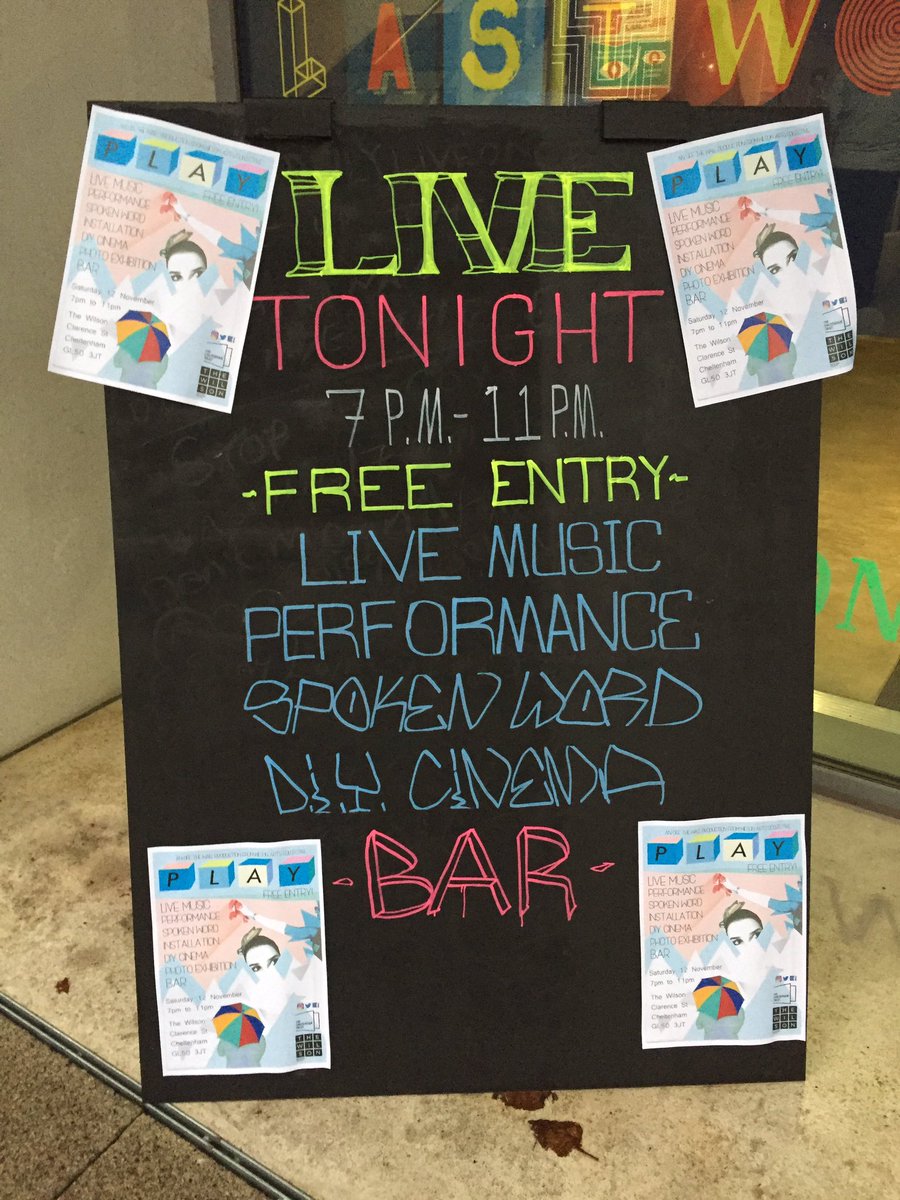 LAST WO
PLAY
FREE ENTRY!
LIVE MUSIC
PERFORMANCE
SPOKEN WORD
INSTALLATION
DIY CINEMA
PHOTO EXHIBITION
BAR
Saturday 12 November
7pm to 11pm
The Wilson
Clarence St
Cheltenham
GL50 3JT
THE
WIL
SON
PLAY
FREE ENTRY!
LIVE MUSIC
PERFORMANCE
SPOKEN WORD
INSTALLATION
DIY CINEMA
PHOTO EXHIBITION
BAR
Saturday 12 November
7pm to 11pm
The Wilson
Clarence St
Cheltenham
GL50 3JT
THE
WIL
SON
LIVE
TONIGHT
7 P.M. - 11 P.M.
-FREE ENTRY-
LIVE MUSIC
PERFORMANCE
SPOKEN WORD
D.I.Y. CINEMA
- BAR -
PLAY
FREE ENTRY!
LIVE MUSIC
PERFORMANCE
SPOKEN WORD
INSTALLATION
DIY CINEMA
PHOTO EXHIBITION
BAR
Saturday 12 November
7pm to 11pm
The Wilson
Clarence St
Cheltenham
GL50 3JT
THE
WIL
SON
PLAY
FREE ENTRY!
LIVE MUSIC
PERFORMANCE
SPOKEN WORD
INSTALLATION
DIY CINEMA
PHOTO EXHIBITION
BAR
Saturday 12 November
7pm to 11pm
The Wilson
Clarence St
Cheltenham
GL50 3JT
THE
WIL
SON